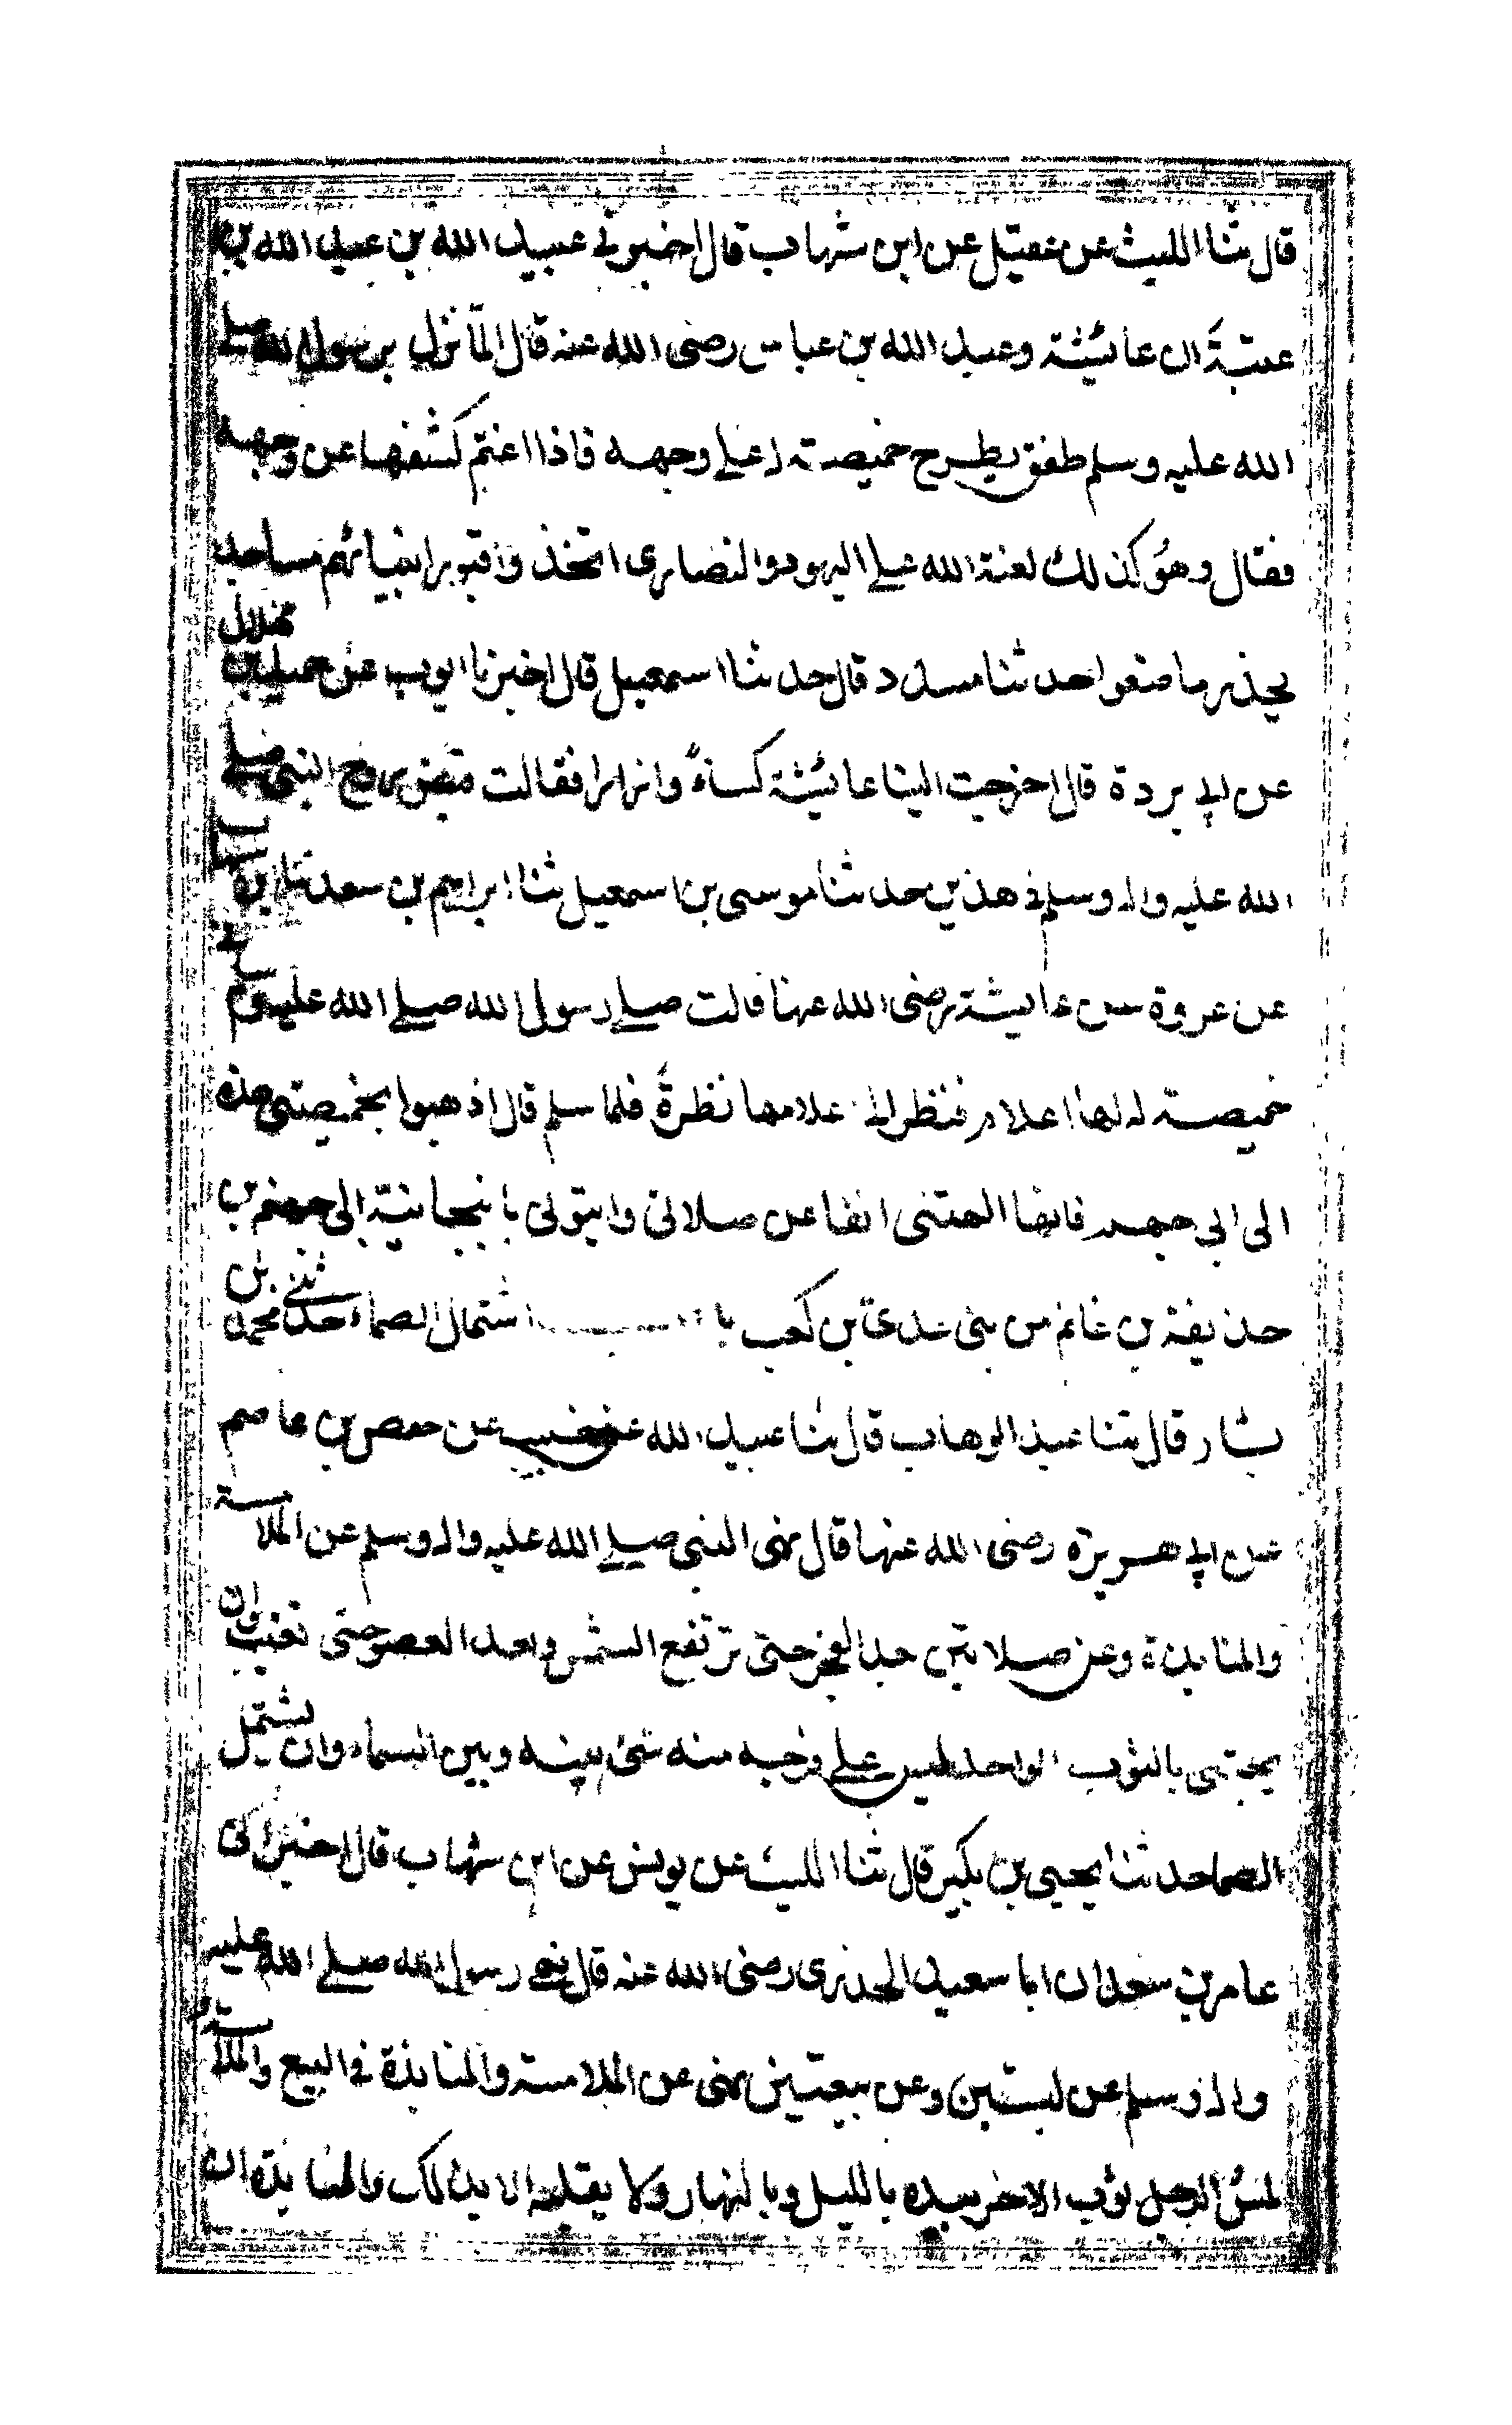 قال ثنا الليث عن عقيل عن ابن شهاب قال اخبرني عبيد الله بن عبد الله بن
عتبة ان عائشة وعبد الله بن عباس رضى الله عنه قال لمّا نزل برسول الله صلے
الله عليه وسلم طفق يطرح خميصة له علے وجهه فاذا اغتم كشفها عن وجهه
فقال وهو كذلك لعنة الله علے اليهود والنصارى اتخذوا قبور انبيائهم مساجد
يحذر ما صنعوا حدثنا مسدد قال حدثنا اسمعيل قال اخبرنا ايوب عن حميد بن هلال
عن ابي بردة قال اخرجت الينا عائشة كساءً وازارا فقالت قبض روح النبي صلے
الله عليه واله وسلم في هذين حدثنا موسى بن اسمعيل ثنا ابراهيم بن سعد ثنا ابن شهاب
عن عروة عن عايشة رضى الله عنها قالت صلے رسول الله صلے الله عليه وسلم في
خميصة له لها اعلام فنظر الى علامها نظرةً فلما سلم قال اذهبوا بخميصتى هذه
الى ابي جهم فانها الهتنى انفا عن صلاتى وايتونى بانبجانية ابي جهم بن
حذيفة بن غانم من بنى عدى بن كعب باب اشتمال الصماء حدثنى محمد بن
بشار قال ثنا عبد الوهاب قال ثنا عبيد الله عن خبيب عن حفص بن عاصم
عن ابي هريرة رضى الله عنها قال نهى النبي صلے الله عليه واله وسلم عن الملامسة
والمنابذة وعن صلاتين بعد الفجر حتى ترتفع الشمس وبعد العصر حتى تغيب وان
يحتبى بالثوب الواحد ليس علے فرجه منه شئ بينه وبين السماء وان يشتمل
الصما حدثنا يحيى بن بكير قال ثنا الليث عن يونس عن ابن شهاب قال اخبرنى
عامر بن سعد ان ابا سعيد الخدرى رضى الله عنه قال نهے رسول الله صلے الله عليه
واله وسلم عن لبستين وعن بيعتين نهى عن الملامسة والمنابذة في البيع والملامسة
لمسُ الرجل ثوب الاخر بيده بالليل وبالنهار ولا يقلبه الا بذلك والمنابذة ان